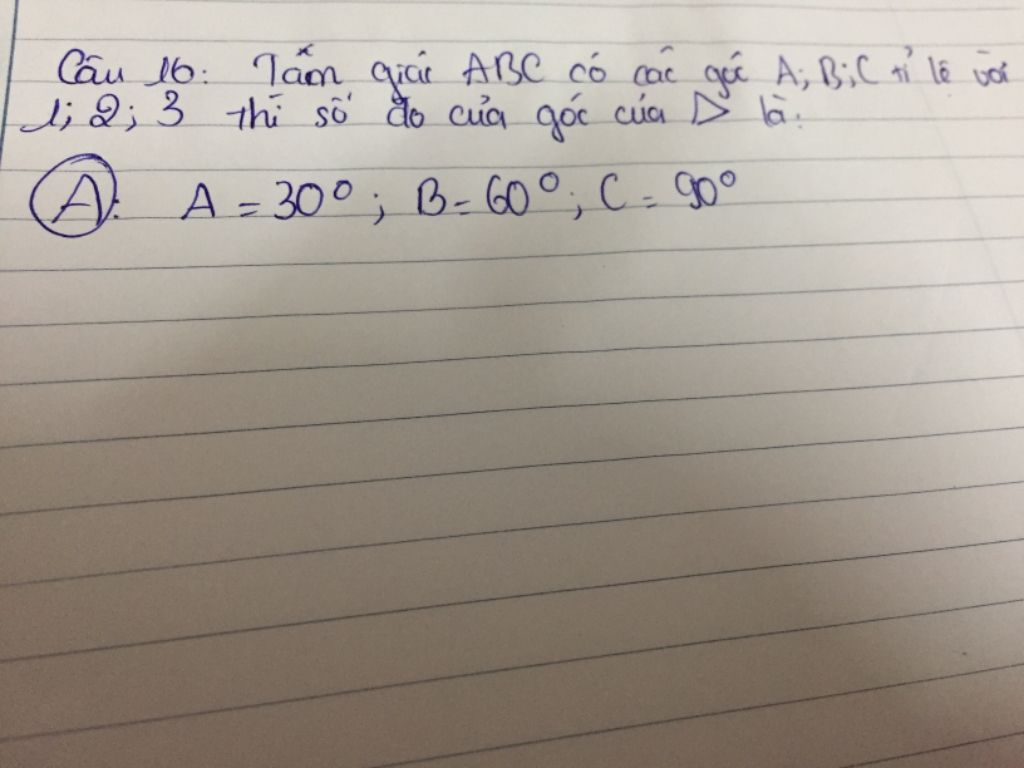 Câu 16: Tấm giác ABC có các góc A; B; C tỉ lệ với
1; 2; 3 thì số đo của góc của △ là:
A: A = 30°; B = 60°; C = 90°